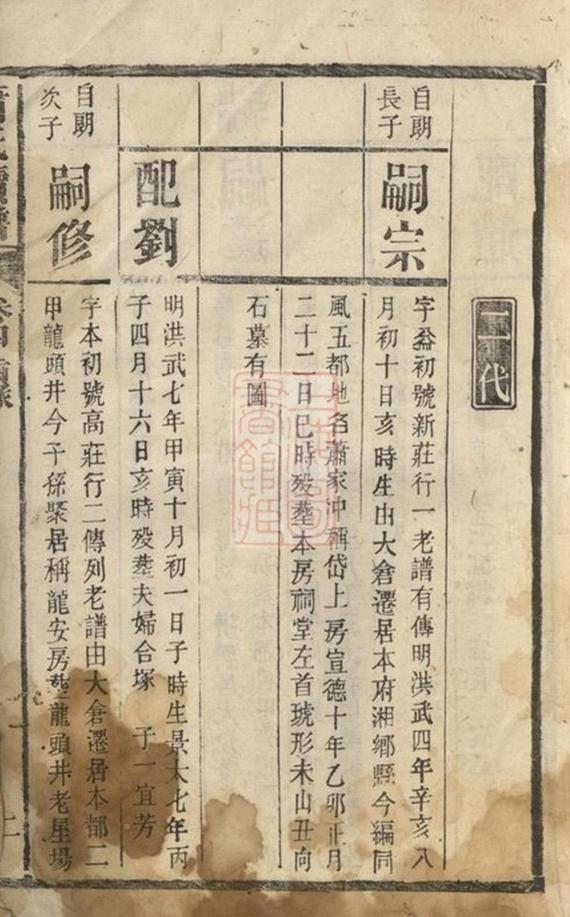 二代
自期
長子
嗣宗
字益初號新莊行一老譜有傳明洪武四年辛亥八
月初十日亥時生由大倉遷居本府湘鄉縣今編同
風五都地名蕭家冲稱岱上房宣德十年乙卯正月
二十二日巳時殁塟本房祠堂左首琥形未山丑向
石墓有圖
配劉
明洪武七年甲寅十月初一日子時生景太七年丙
子四月十六日亥時殁塟夫婦合塚 子一宜芳
自期
次子
嗣修
字本初號高莊行二傳列老譜由大倉遷居本都二
甲龍頭井今子孫聚居稱龍安房塟龍頭井老屋場
卷四
二